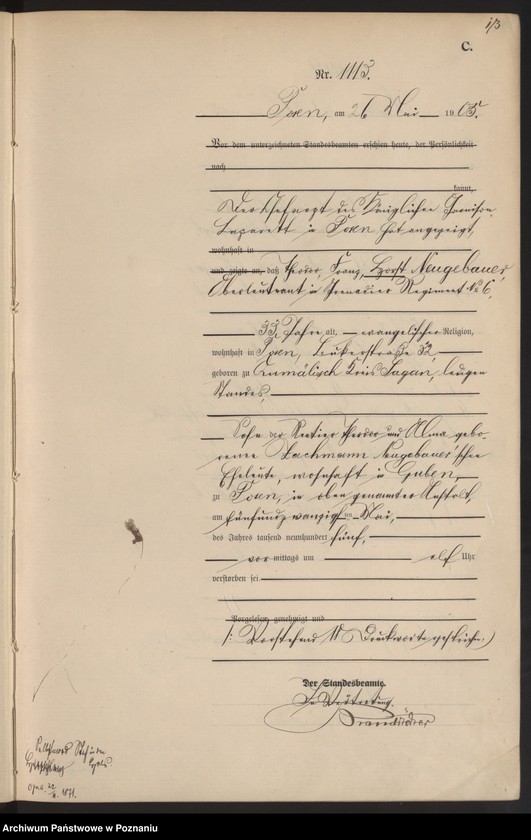 1/3
C.
Nr. 1113.
Posen, am 26 Mai 1905.
Vor dem unterzeichneten Standesbeamten erschien heute, der Persönlichkeit
nach
kannt,
Der Chefarzt des Königlichen Garnison
Lazarett in Posen hat angezeigt,
wohnhaft in
und zeigte an, daß Theodor, Franz, Horst Neugebauer
Oberleutnant im Grenadier Regiment No 6,
33 Jahre alt, evangelischer Religion,
wohnhaft in Posen, Bukerstraße
geboren zu Kreis Sagan, ledigen
Standes,
Sohn der Rentier Theodor und Alma gebo-
renen Lachmann Neugebauer'schen
Eheleute, wohnhaft in Guben,
zu Posen, in oben genannter Anstalt,
am fünfundzwanzigsten Mai,
des Jahres tausend neunhundert fünf,
vor mittags um elf Uhr
verstorben sei.
Vorgelesen, genehmigt und
/: Vorstehend 11 Druckworte gestrichen.)
Der Standesbeamte.
In Vertretung.
1871.
Archiwum Państwowe w Poznaniu